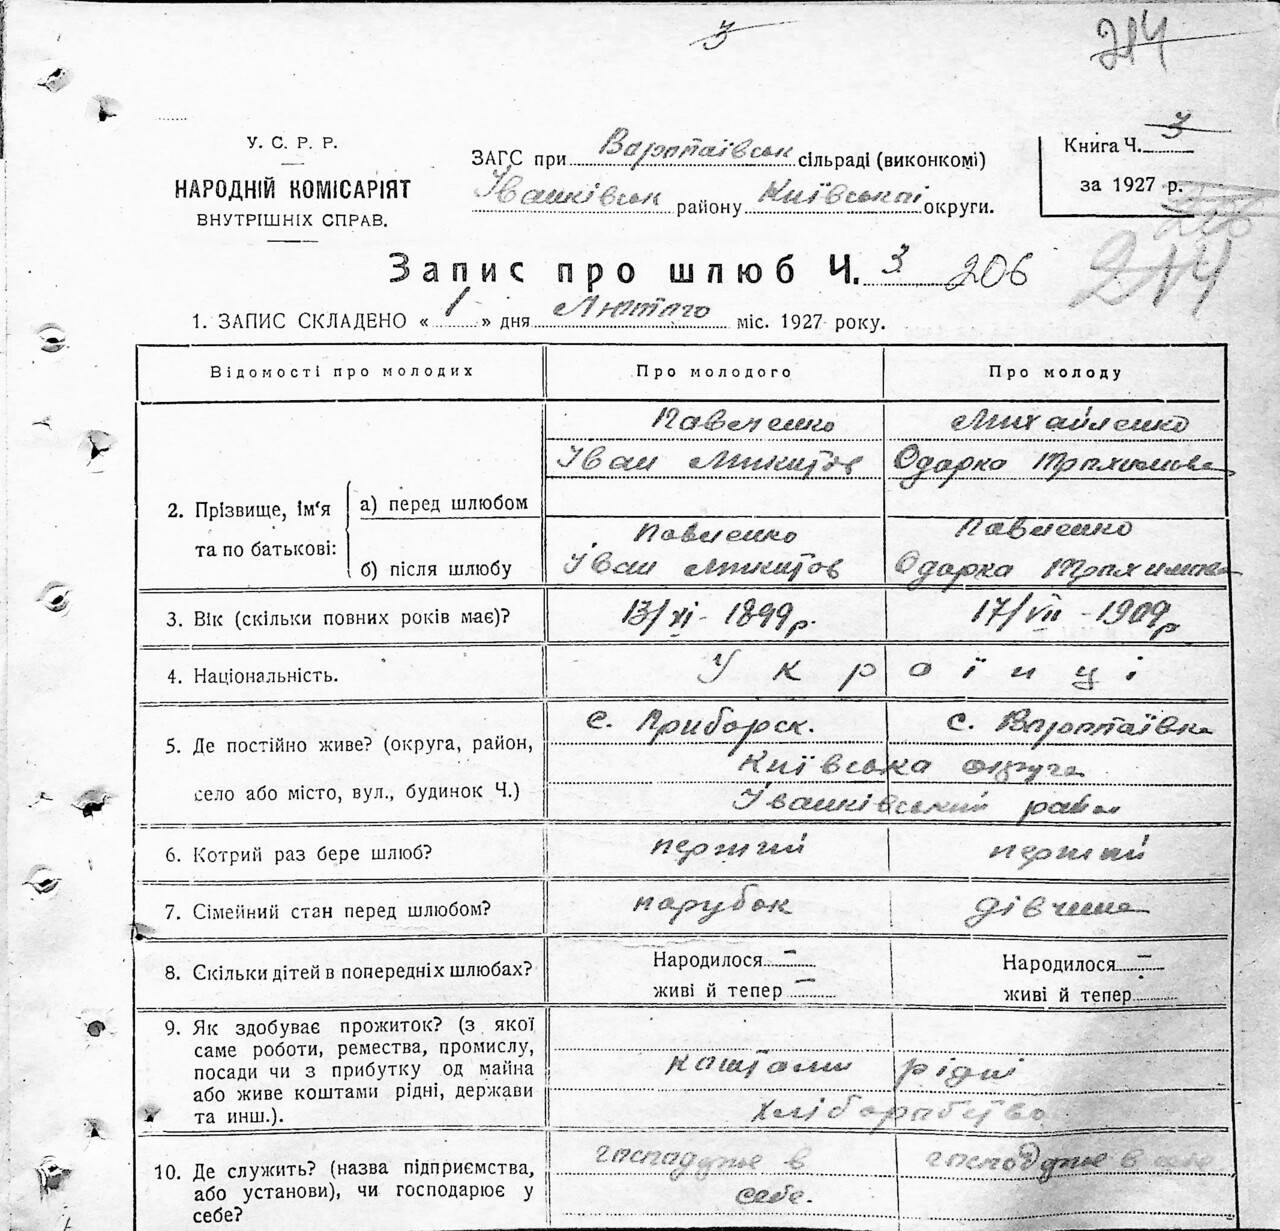 3
214
У. С. Р. Р.
НАРОДНІЙ КОМІСАРІЯТ
ВНУТРІШНІХ СПРАВ.
ЗАГС при Вороптаївськ сільраді (виконкомі)
Іванківськ району Київської округи.
Книга Ч. 3
за 1927 р.
206
214
Запис про шлюб Ч. 3 206
1. ЗАПИС СКЛАДЕНО « 1 » дня Лютого міс. 1927 року.
Відомості про молодих Про молодого Про молоду
Павленко Михайленко
Іван Микитов Одарка Трохимова
2. Прізвище, ім'я та по батькові: а) перед шлюбом
б) після шлюбу
Павленко Павленко
Іван Микитов Одарка Трохимова
3. Вік (скільки повних років має)? 13/XI - 1899 р. 17/VII - 1909 р
4. Національність. Українці
5. Де постійно живе? (округа, район, село або місто, вул., будинок Ч.) с. Приборск. с.
Київська округа
Іванківський район
6. Котрий раз бере шлюб? перший перший
7. Сімейний стан перед шлюбом? парубок дівчина
8. Скільки дітей в попередніх шлюбах? Народилося - Народилося -
живі й тепер - живі й тепер -
9. Як здобуває прожиток? (з якої
саме роботи, ремества, промислу,
посади чи з прибутку од майна
або живе коштами рідні, держави
та инш.).
коштами рідні
хліборобство
10. Де служить? (назва підприємства,
або установи), чи господарює у
себе?
господарює в себе. господарює в себе